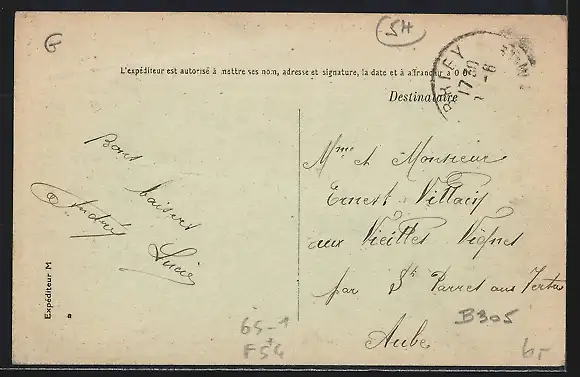 G
SH
L'expéditeur est autorisé à mettre ses nom, adresse et signature, la date et à affranchir à 0 0
BRIEY
17 30
6
Destinataire
Bons
baisers
André
Lucie
Mme et Monsieur
Ernest Villain
aux Vieilles Vignes
par St Parres aux Tertres
Aube
Expéditeur M
65-1
F54
B305